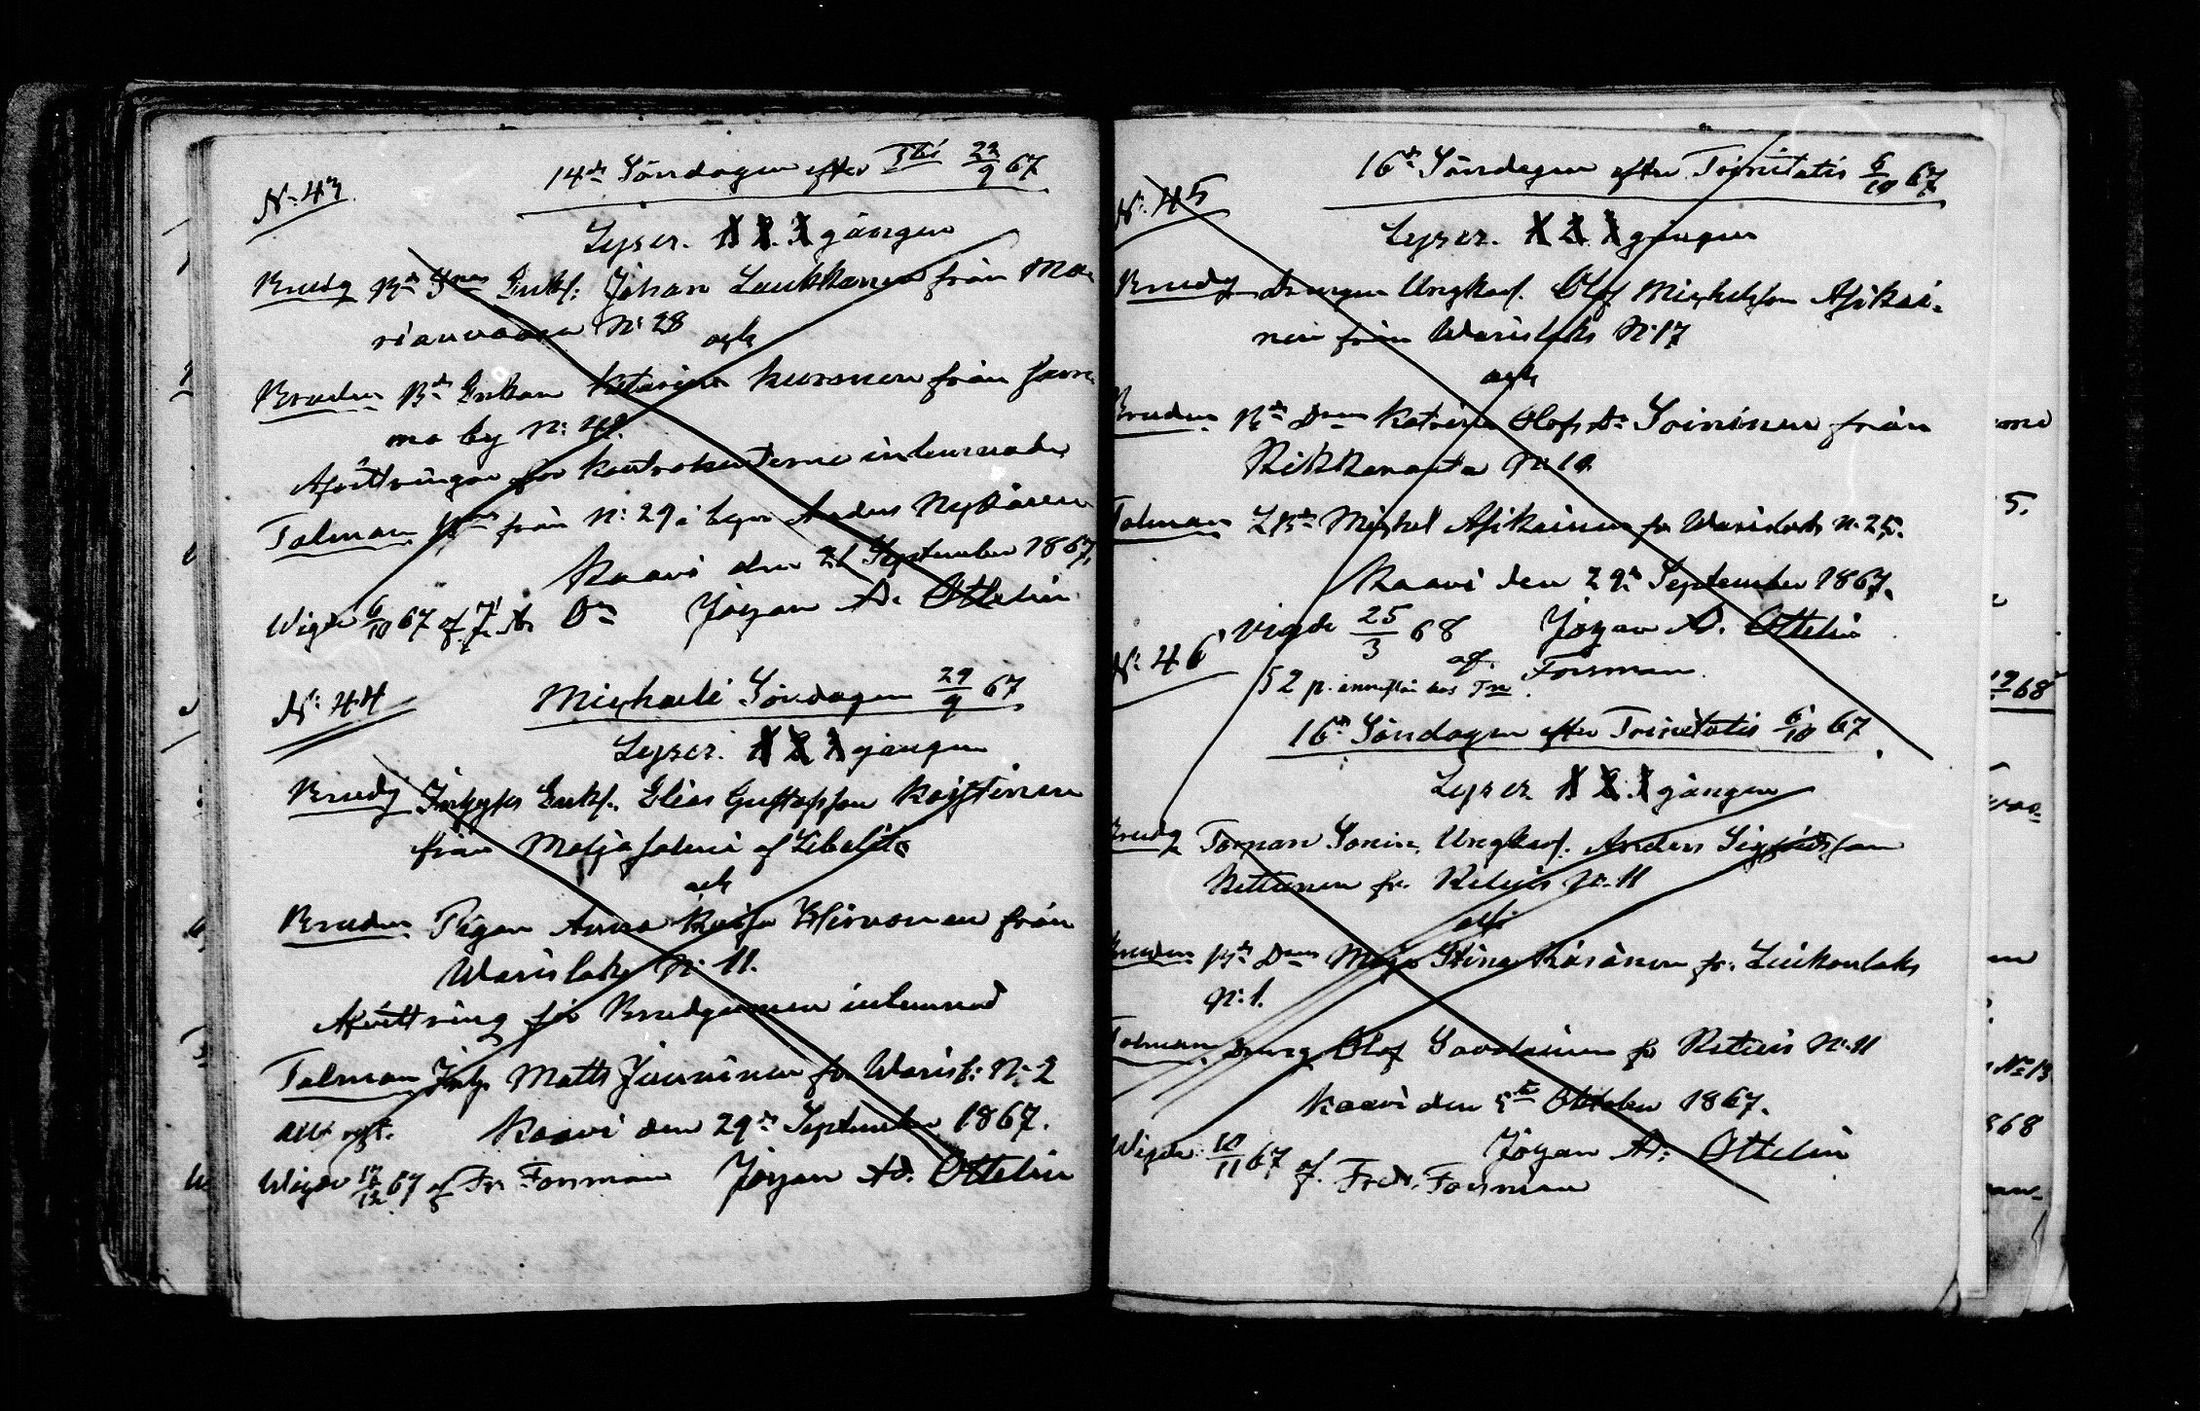 N: 43
14de Söndagen efter Tbi 22/9 67
Lyser. 1 2. 3 gången
Brudg Bd Enkl: Johan Laukkanen från Ma-
rianvaara N: 28
och
Bruden Bd Enkan Katarina Kuronen från
mo by N: 42.
Afvittringar för Kontrahenterne inlemnade
Talman från N: 29 i byn Anders Nykänen
Kaavi den 21 September 1867.
Wigde 6/10 67 af Johan A. Ottelin
N: 44
Michaeli Söndagen 29/9 67
Lyser. 1 2 3 gången
Brudg Inhyses Enkl. Elias Gustafsson Koistinen
från Maljasalmi af Libelits
och
Bruden Pigan Anna Kaisa Hirvonen från
Warislaks N: 11.
Afvittring för Brudgummen inlemnad
Talman Inhys Matts Juuninen fr. Warisl: N: 2
Kaavi den 29de September 1867.
Wigde 12/12 67 af Fr. Forsman Johan Ad. Ottelin
N: 45
16de Söndagen efter Trinitatis 6/10 67
Lyser. 1 2. 3 gången
Brudg Drengen Ungkarl. Olof Michelsson Asikai-
nen från Warislaks N: 17
och
Bruden Bd Dren Katrina Olofs Dr Soininen från
Rikkaranta N: 10.
Talman Bd Michel Asikainen fr Warislaks N. 25.
Kaavi den 29de September 1867.
Vigde 25/3 68 Johan A. Ottelin
af Forsman
N: 46
52 p.
16de Söndagen efter Trinitatis 6/10 67
Lyser 1 2. 3 gången
Brudg Torpare Sonen, Ungkarl. Anders Sigfridsson
fr. N: 11
och
Bruden Bd Dren Maja Stina Räsänen fr. Luikonlaks
N: 1.
Talman Dreng Olof Savolainen fr N: 11
Kaavi den 5te Oktober 1867.
Johan A: Ottelin
Wigde 10/11 67 af Fredr. Forsman
5.
68
N: 13
868